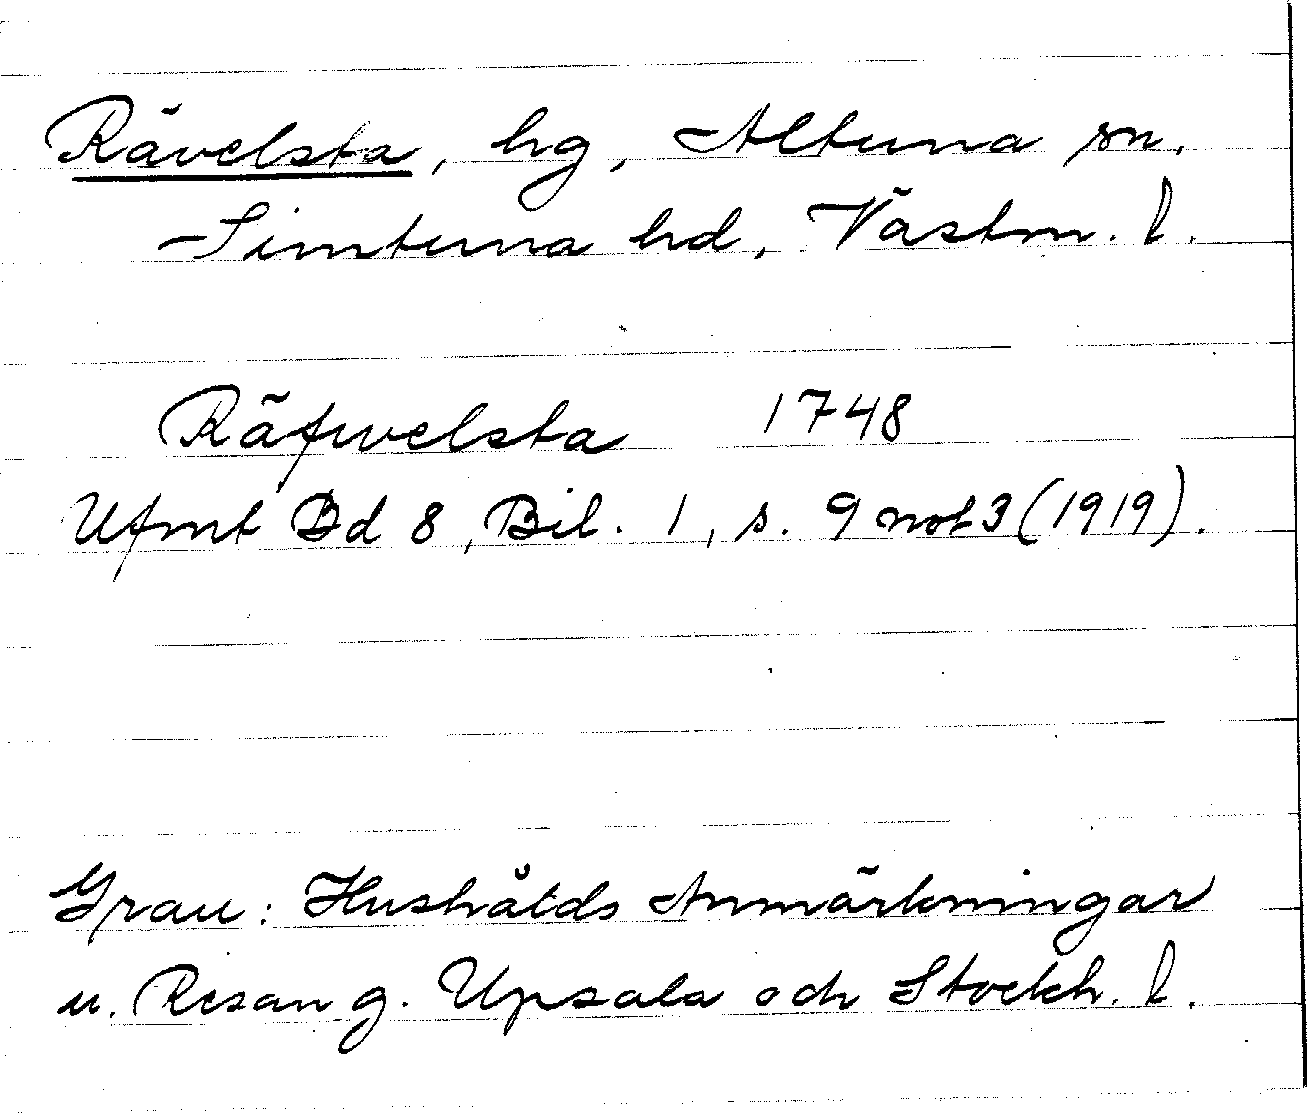 Rävelsta, hg, Altuna sn.
Simtuna hd, Västm. l.
Räfwelsta 1748
Ufmt Bd 8, Bil. 1, s. 9 not 3 (1919).
Grau: Hushålds Anmärkningar
u. Resan g. Upsala och Stockh. l.